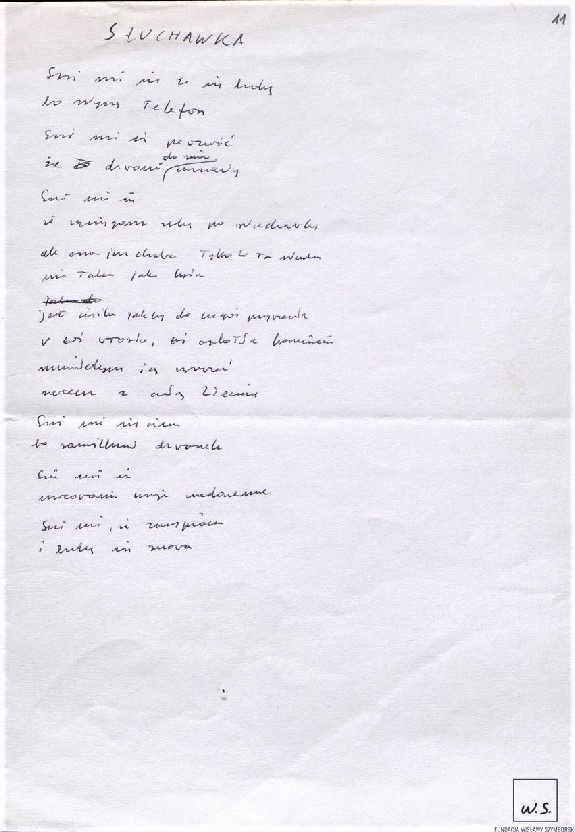 SŁUCHAWKA
11
Śni mi się że się budzę
bo słyszę Telefon
Śni mi się pewność
że dzwoni do mnie umarły
Śni mi się
że wyciągam rękę po słuchawkę
Tylko że ta słuchawka
nie Taka jak była
jest ciężka jakby do czegoś przywarła
w coś wrosła, coś oplotła korzeniami
musiałabym ją wyrwać
razem z całą Ziemią
Śni mi się cisza
bo zamilknął dzwonek
Śni mi się
mocowanie moje nadaremne
Śni mi się, że zasypiam
i budzę się znowu
W.S.
FUNDACJA WISŁAWY SZYMBORSKIEJ